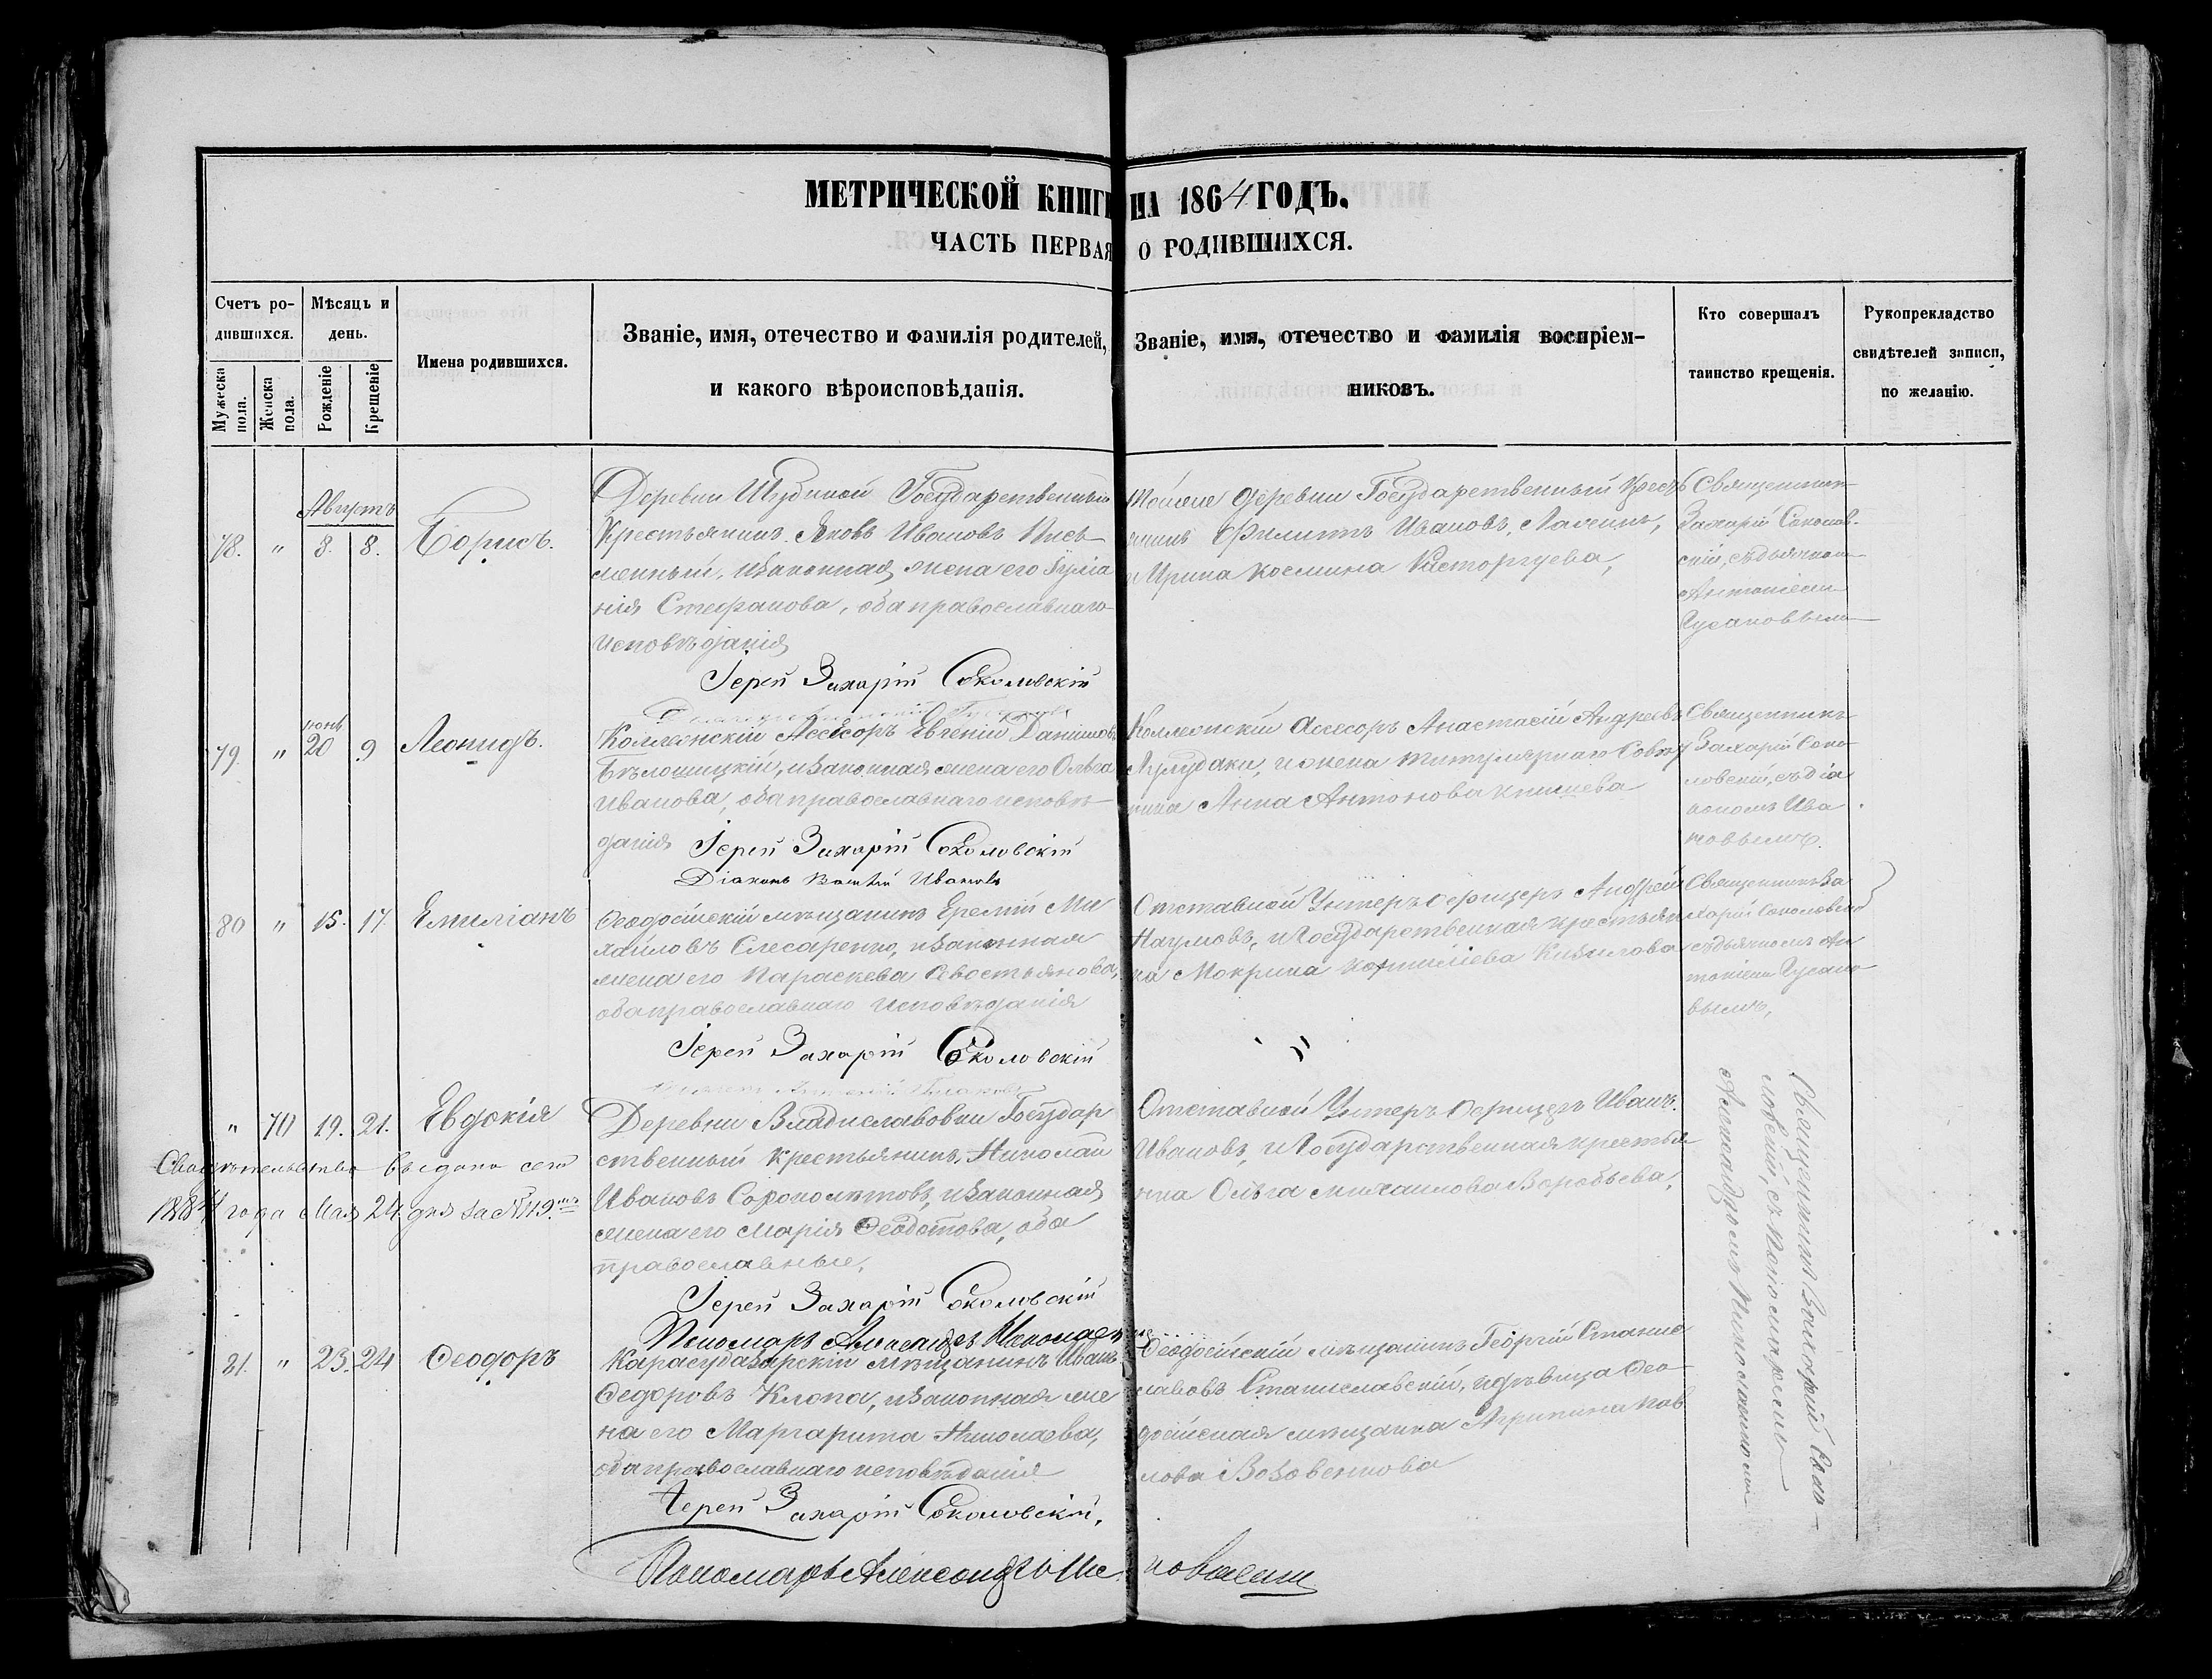 МЕТРИЧЕСКОЙ КНИГИ НА 1864 ГОДЪ.
ЧАСТЬ ПЕРВАЯ О РОДИВШИХСЯ.
Счетъ родившихся.
Мужеска пола.
Женска пола.
Мѣсяцъ и день.
Рожденіе
Крещеніе
Имена родившихся.
Званіе, имя, отечество и фамилія родителей,
и какого вѣроисповѣданія.
Званіе, имя, отечество и фамилія воспріем-
никовъ.
Кто совершалъ
таинство крещенія.
Рукоприкладство
свидѣтелей записи,
по желанію.
Августъ
78. " 8. 8. Борисъ.
Деревни Шубиной Государственный
Крестьянинъ Яковъ Ивановъ Пись-
менный, изаконная жена его Іуліа
нія Стефанова, оба православнаго
исповѣданія
Іерей Захарій Соколовскій
Тойже деревни Государственный Крестъ
янинъ Филиппъ Ивановъ,
и Ирина Космина Расторгуева,
Священник
Захарій Соколов-
скій, съ дьячкомъ
Антоніемъ
Гусаковымъ
79. " июнь 20 9 Леонидъ.
Коллежскій Ассесоръ Евгеній Даниловъ
Бѣлошицкій, изаконная жена его Ольга
Иванова, оба православнаго исповѣ-
данія Іерей Захарій Соколовскій
Діаконъ Ивановъ
Коллежскій Ассесоръ Анастасій Андреевъ
и жена титулярнаго Совѣт
ника Анна Антонова
Священникъ
Захарій Соко-
ловскій, съ діа
кономъ Ива
новымъ.
80 " 15. 17. Емиліанъ
Ѳеодосійскій мѣщанинъ Еремій Ми
хайловъ Слесаренко, изаконная
жена его Параскева Севостьянова,
оба православнаго исповѣданія
Іерей Захарій Соколовскій
Отставной Унтеръ Офицеръ Андрей
Наумовъ, и Государственная крестьян
ка Мокрина Корниліева
Священникъ За
харій Соколовскій
съ дьячкомъ Ан
тоніемъ Гусако
вымъ,
" 70 19. 21. Евдокія
Свидѣтельство выдано сего
1884 года Мая 24 дня за № 119
Деревни Владиславовки Государ
ственный крестьянинъ, Николай
Ивановъ Сорополѣтовъ, изаконная
жена его Марія Ѳеодотова, оба
православные,
Іерей Захарій Соколовскій
Пономарь Александръ
Отставной Унтеръ Офицеръ Иванъ
Ивановъ, и Государственная крестья
нка Ольга Михаилова Воробьева,
Священникъ Захарій Соко-
ловскій, съ Пономаремъ
Александромъ
81. " 23. 24 Ѳеодоръ
Карасубазарскій мѣщанинъ Иванъ
Ѳедоровъ Клопа, изаконная же
на его Маргарита Николаева,
оба православнаго исповѣданія
Іерей Захарій Соколовскій,
Пономарь Александръ
Ѳеодосійскій мѣщанинъ Георгій Станис
лавовъ Станиславскій, и дѣвица Ѳео
досійская мѣщанка Агрипина Пав
лова